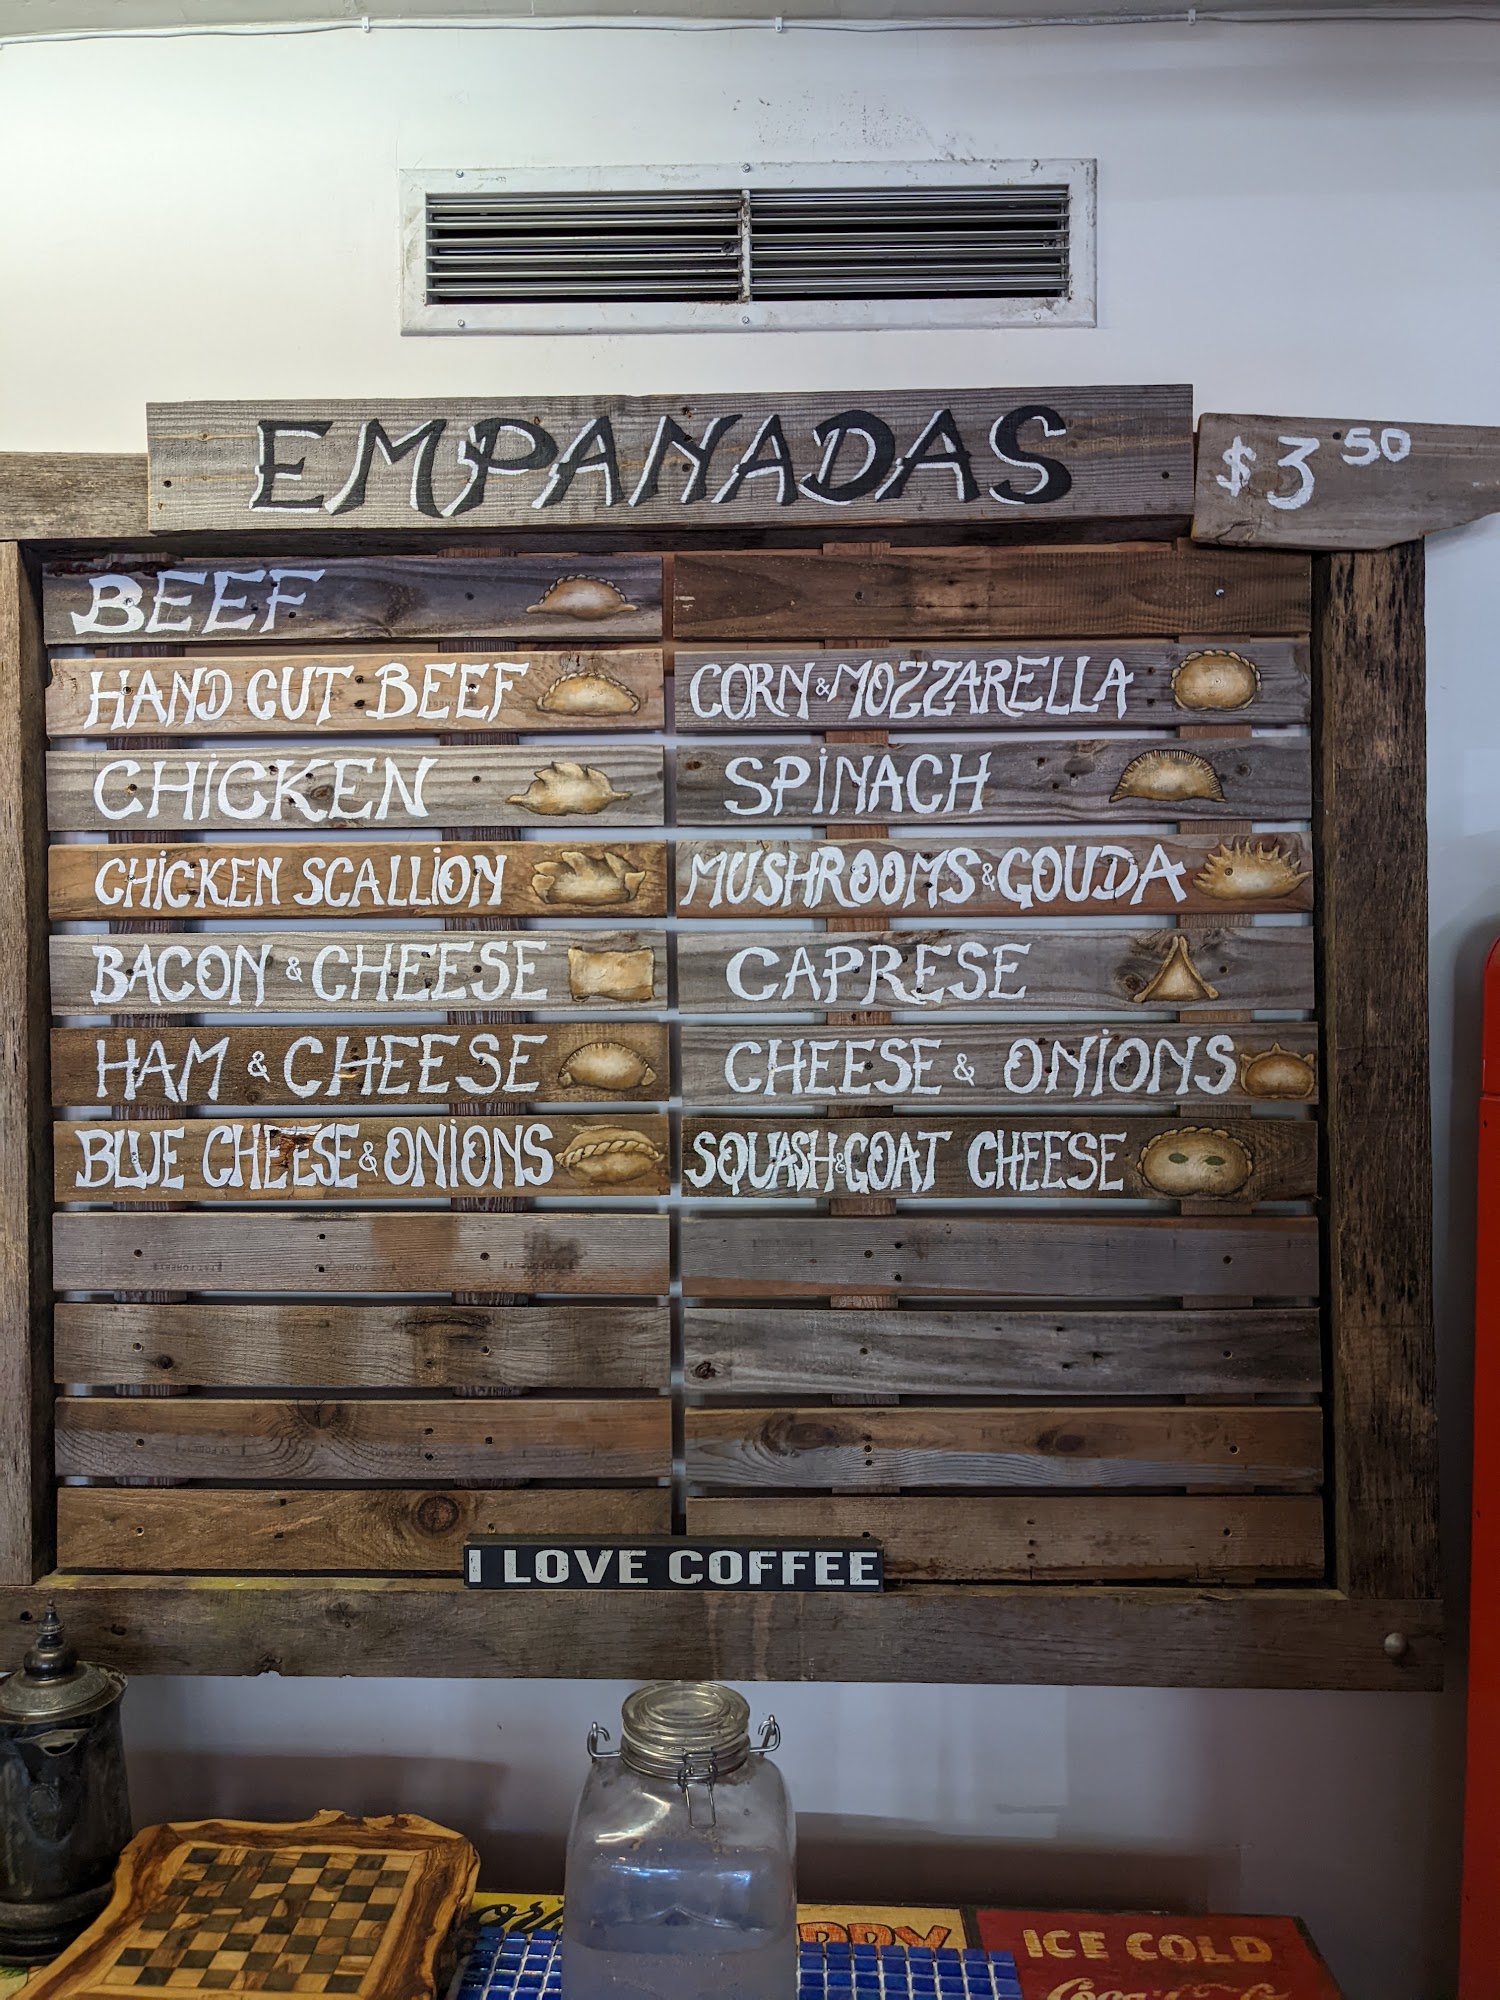 EMPANADAS
$3.50
BEEF
HAND CUT BEEF
CHICKEN
CHICKEN SCALLION
BACON & CHEESE
HAM & CHEESE
BLUE CHEESE & ONIONS
CORN & MOZZARELLA
SPINACH
MUSHROOMS & GOUDA
CAPRESE
CHEESE & ONIONS
SQUASH & GOAT CHEESE
I LOVE COFFEE
ICE COLD
Coca-Cola